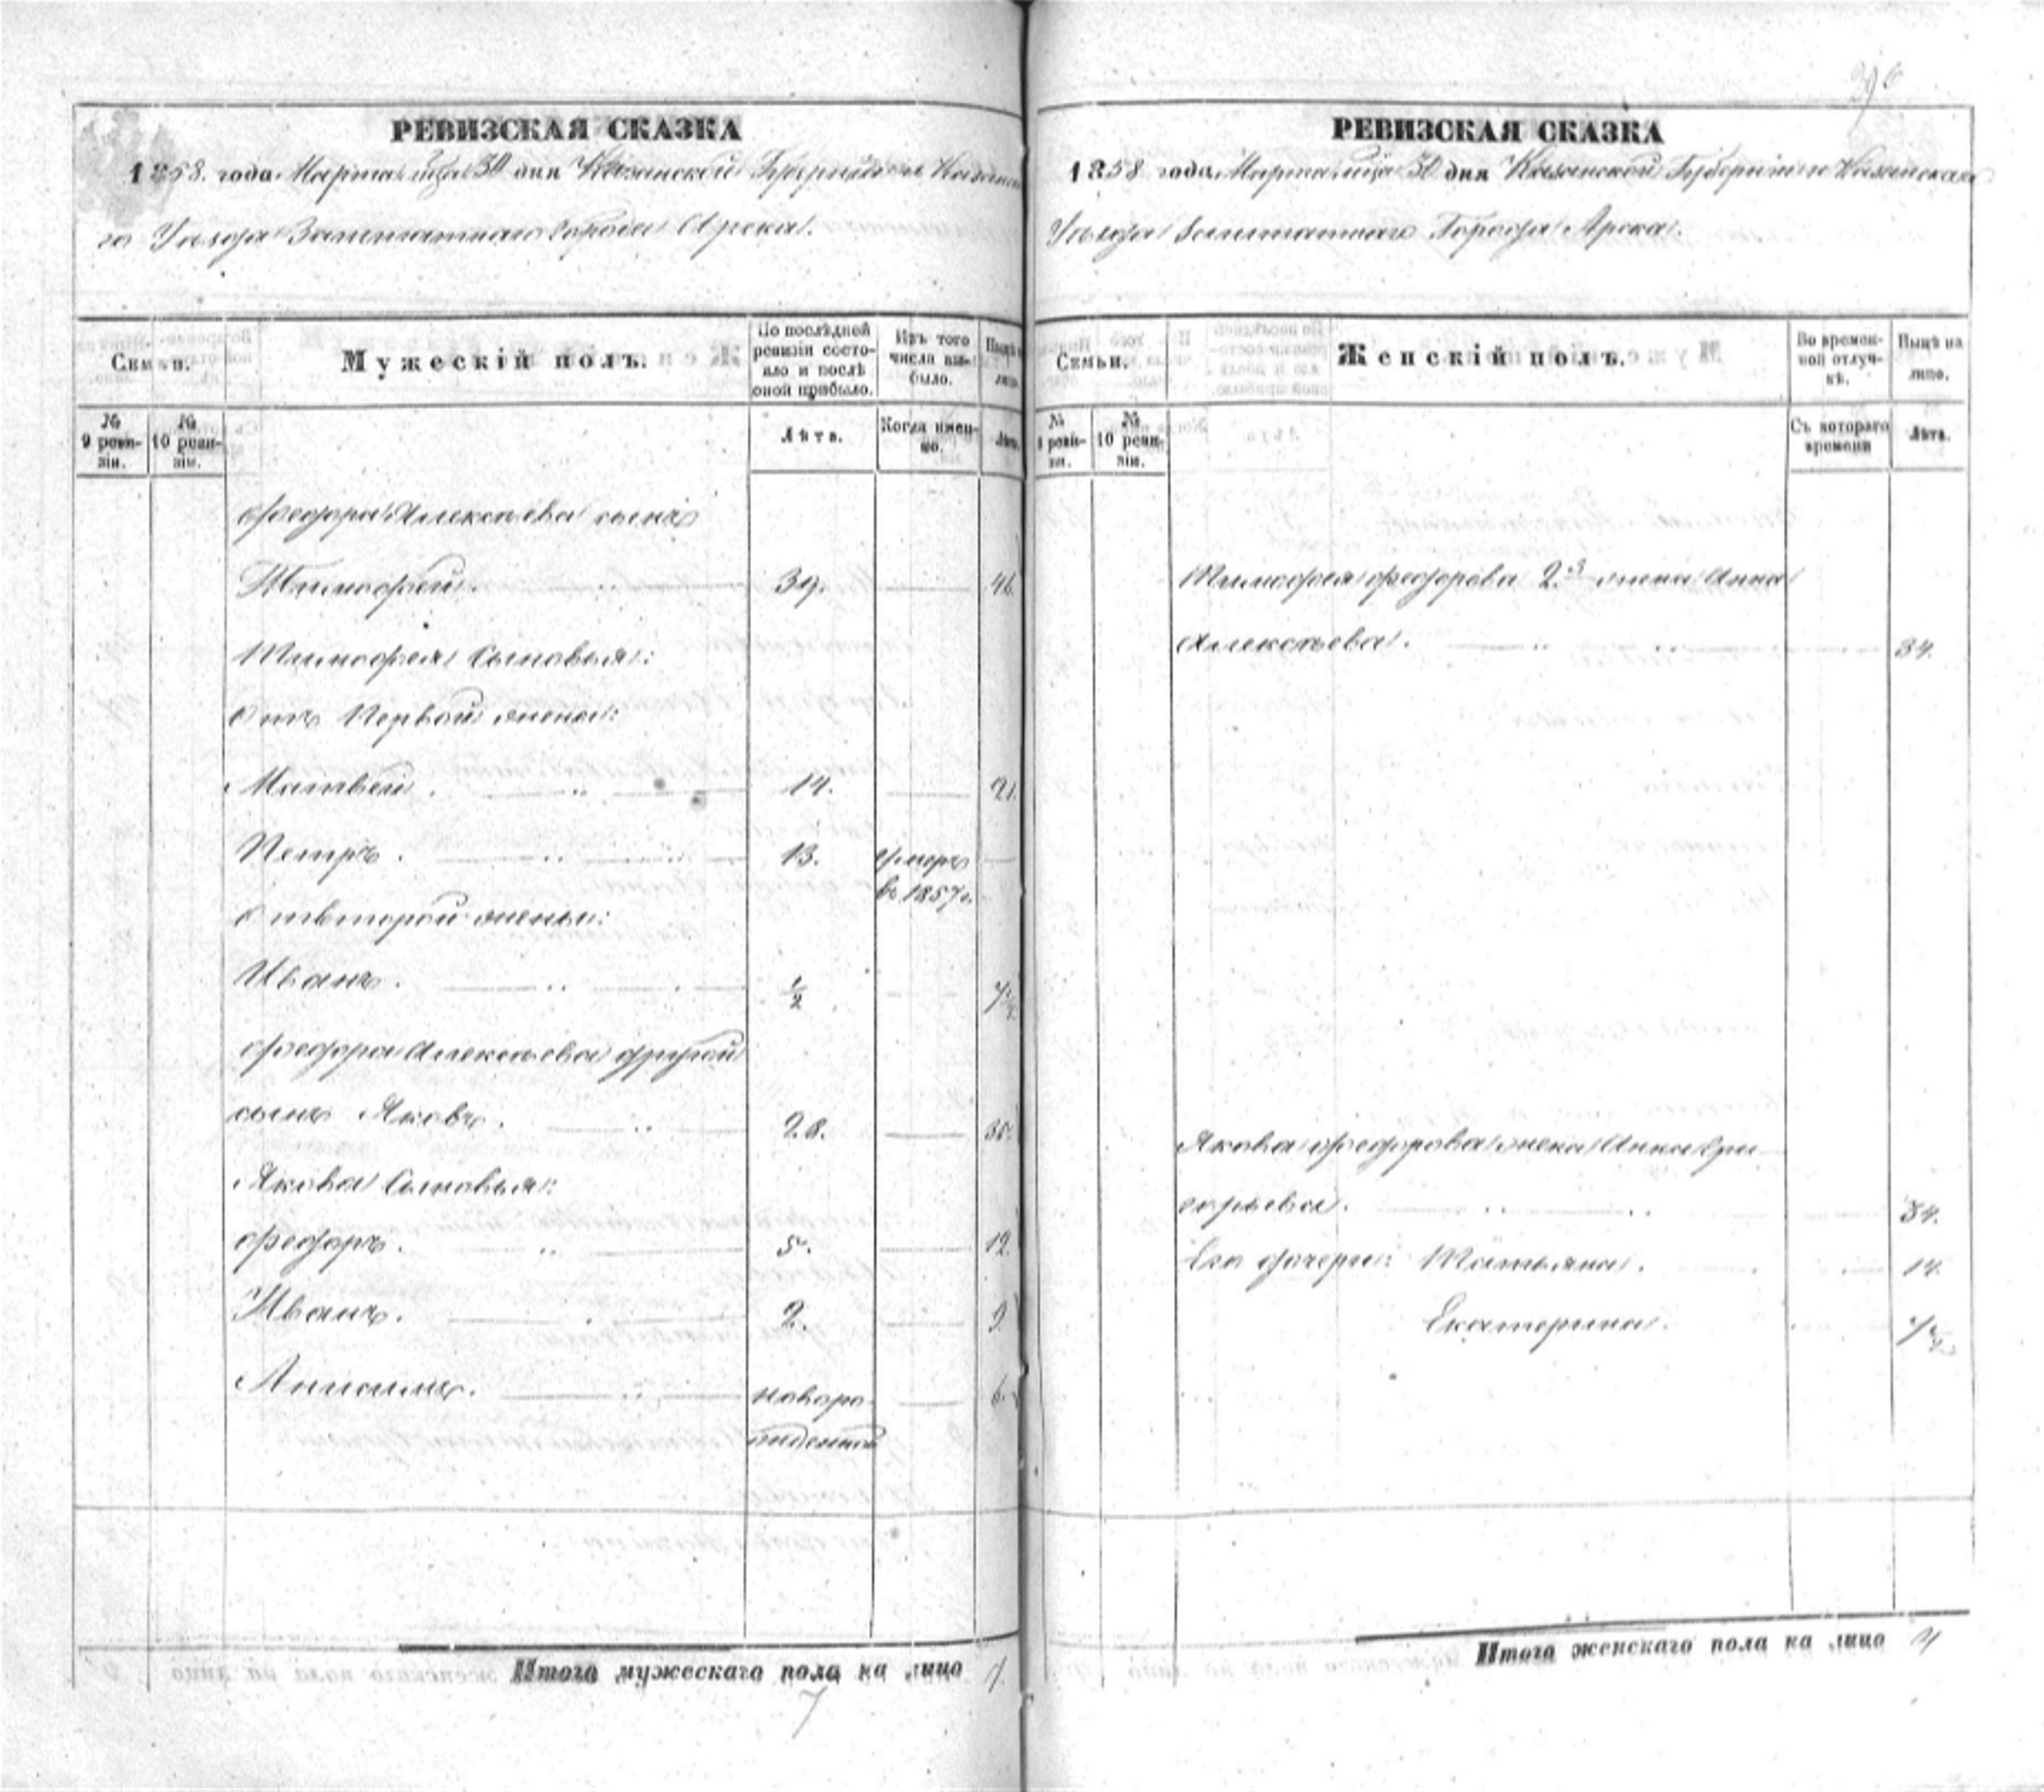 РЕВИЗСКАЯ СКАЗКА
1858. года. Марта м-ца 30 дня Казанской Губернии Казанска
го Уезда Заштатнаго города Арска.
Семьи.
Мужескій полъ.
По послѣдней ревизіи состо-
яло и послѣ
оной прибыло.
Изъ того
числа вы-
было.
Нынѣ на
лицо.
№
9 реви-
зіи.
№
10 реви-
зіи.
Лѣта.
Когда имен-
но.
Лѣта.
Федора Алексѣева сынъ
Тимофей. 39. 46.
Тимофея Сыновья:
Отъ Первой жены:
Матвей. 14. 21.
Петръ. 13. умеръ
въ 1857 г.
Отъ второй жены:
Иванъ. 1/2 7 1/2
Федора Алексѣева другой
сынъ Яковъ. 28. 35.
Якова Сыновья:
Федоръ. 5. 12.
Иванъ. 2. 9.
Анисимъ. новоро- 6.
жденной
Итого мужескаго пола на лицо 7
7
РЕВИЗСКАЯ СКАЗКА
1858 года. Марта м-ца 30 дня Казанской Губернии Казанскаго
Уезда Заштатнаго Города Арска.
Семьи.
Женскій полъ.
Во времен-
ной отлуч-
кѣ.
Нынѣ на
лицо.
№
9 реви-
зіи.
№
10 реви-
зіи.
Съ котораго
времени
Лѣта.
Тимофея Федорова 2я жена Анна
Алексѣева. 34.
Якова Федорова жена Анна Гри
горьева. 34.
Его дочери: Татьяна. 14.
Екатерина.
Итого женскаго пола на лицо 4